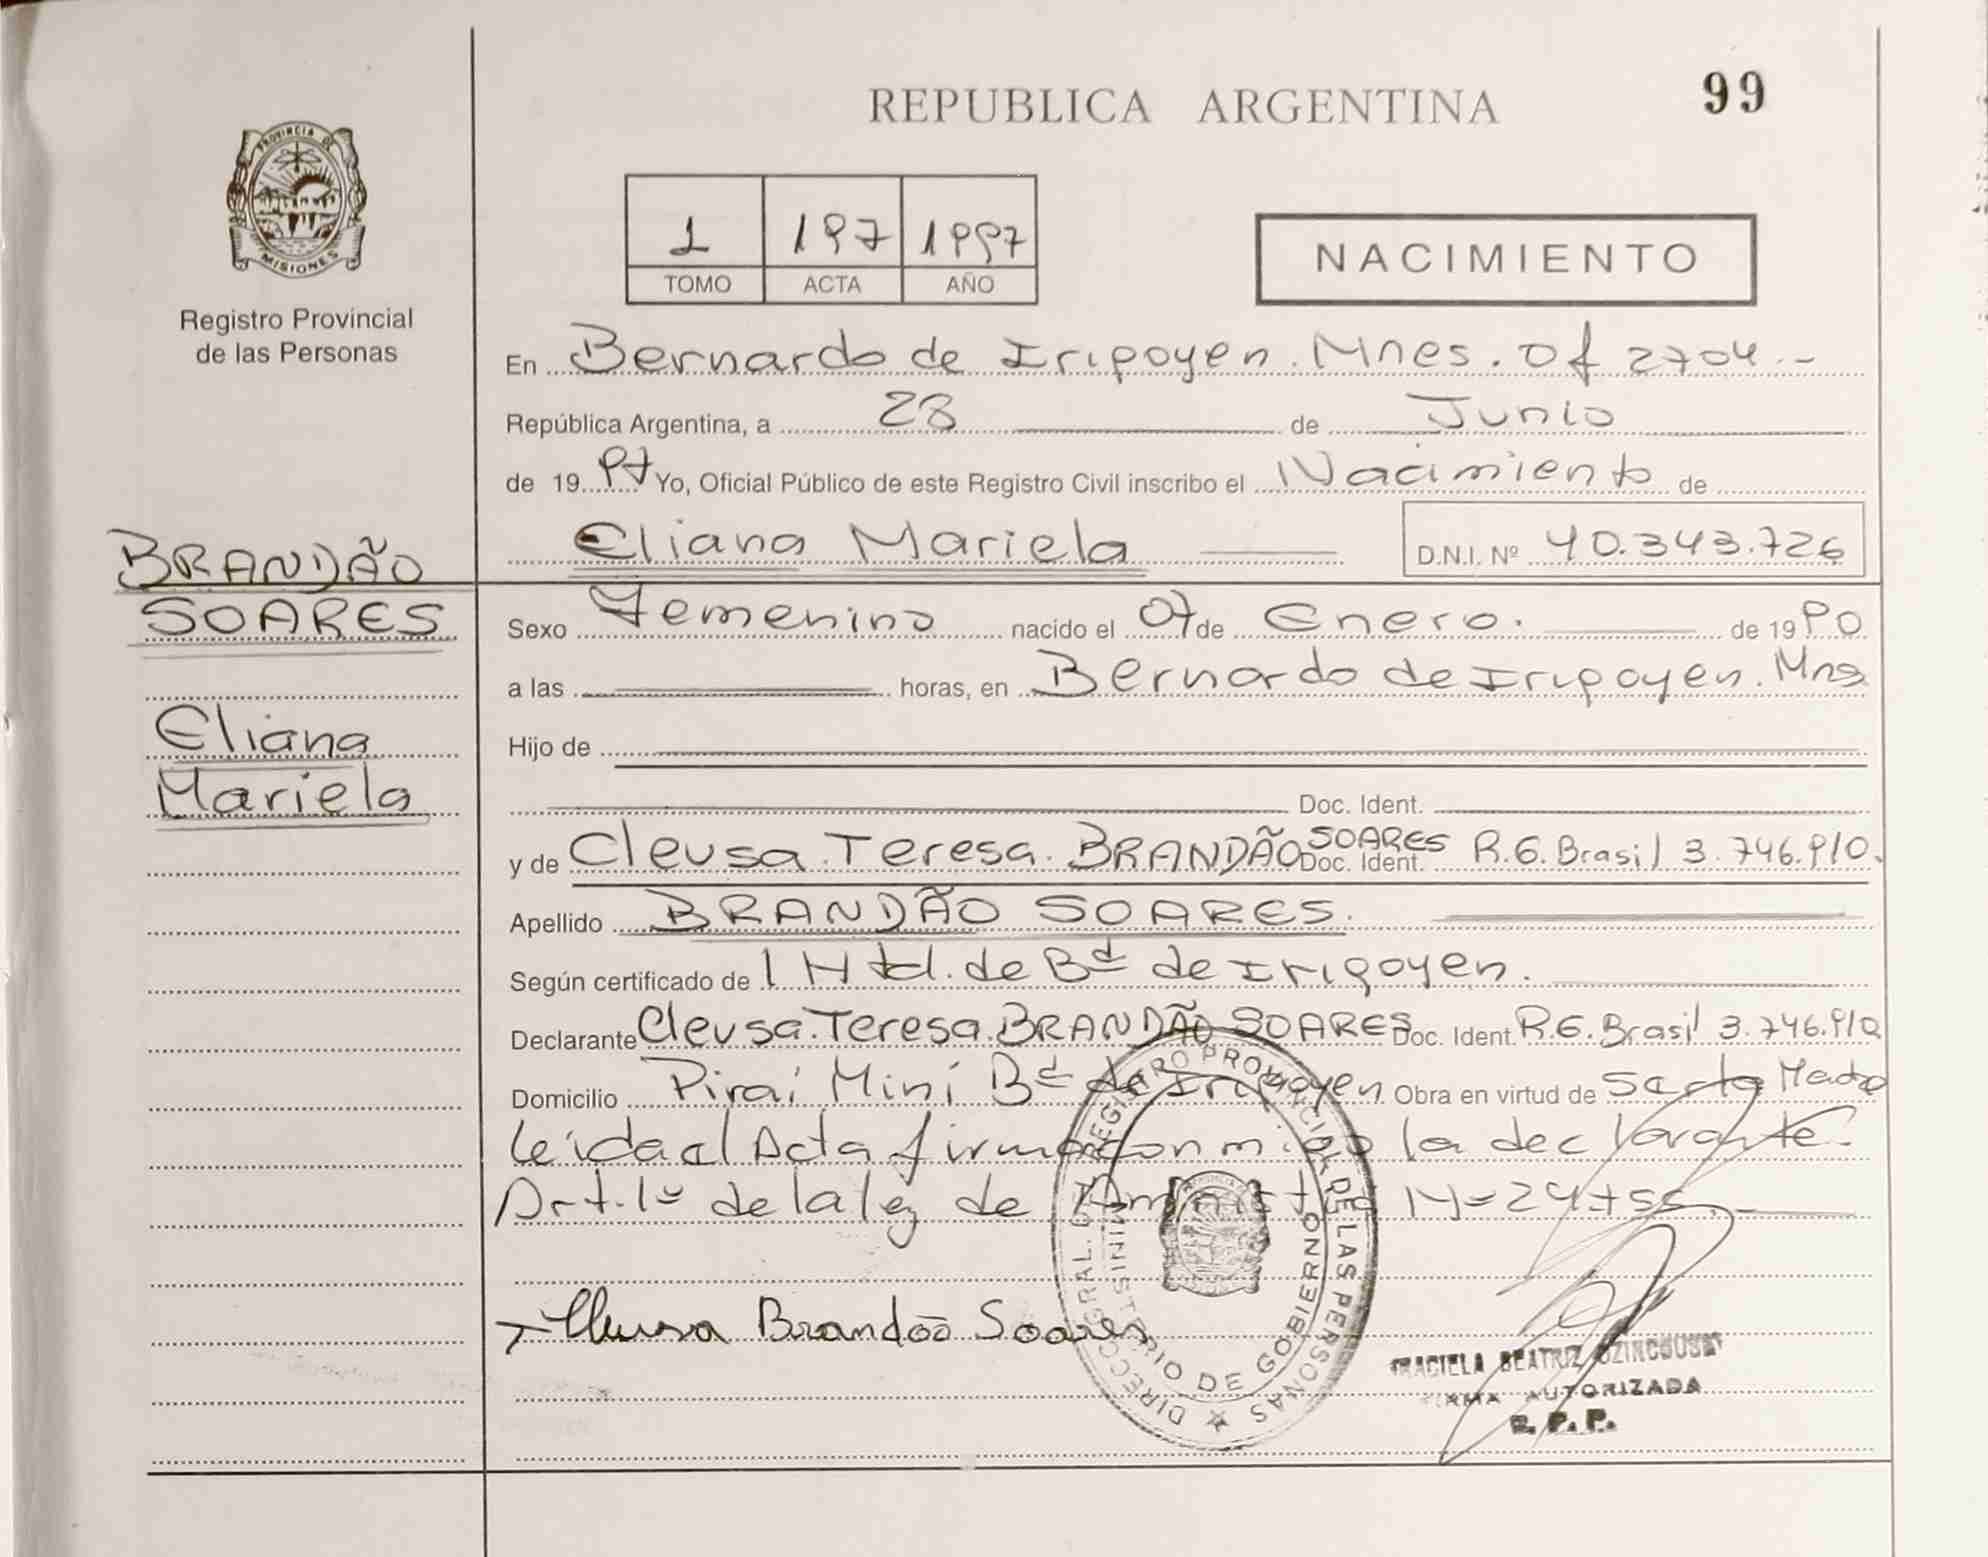 REPUBLICA ARGENTINA
99
PROVINCIA DE
MISIONES
Registro Provincial
de las Personas
1 197 1997
TOMO ACTA AÑO
NACIMIENTO
En Bernardo de Irigoyen. Mnes. Of 2704.-
República Argentina, a 28 de Junio
de 19 97 Yo, Oficial Público de este Registro Civil inscribo el Nacimiento de
Eliana Mariela D.N.I. Nº 40.343.726
BRANDÃO
SOARES
Eliana
Mariela
Sexo Femenino nacido el 07 de Enero. de 19 90
a las horas, en Bernardo de Irigoyen. Mns
Hijo de
Doc. Ident.
y de Cleusa Teresa. BRANDÃO SOARES Doc. Ident. R.G. Brasil 3.746.910.
Apellido BRANDÃO SOARES.
Según certificado de 1 Htal. de Bdº de Irigoyen.
Declarante Cleusa Teresa. BRANDÃO SOARES Doc. Ident. R.G. Brasil 3.746.910
Domicilio Pirai Miní Bdº de Irigoyen Obra en virtud de
Leída el Acta firma con migo la declarante.
Art. 1º de la ley de Amnistia Nº 24755.
Cleusa Brandão Soares
DIRECC. GRAL. DEL REGISTRO PROVINCIAL DE LAS PERSONAS
MINISTERIO DE GOBIERNO
GRACIELA BEATRIZ
FIRMA AUTORIZADA
R. P. P.